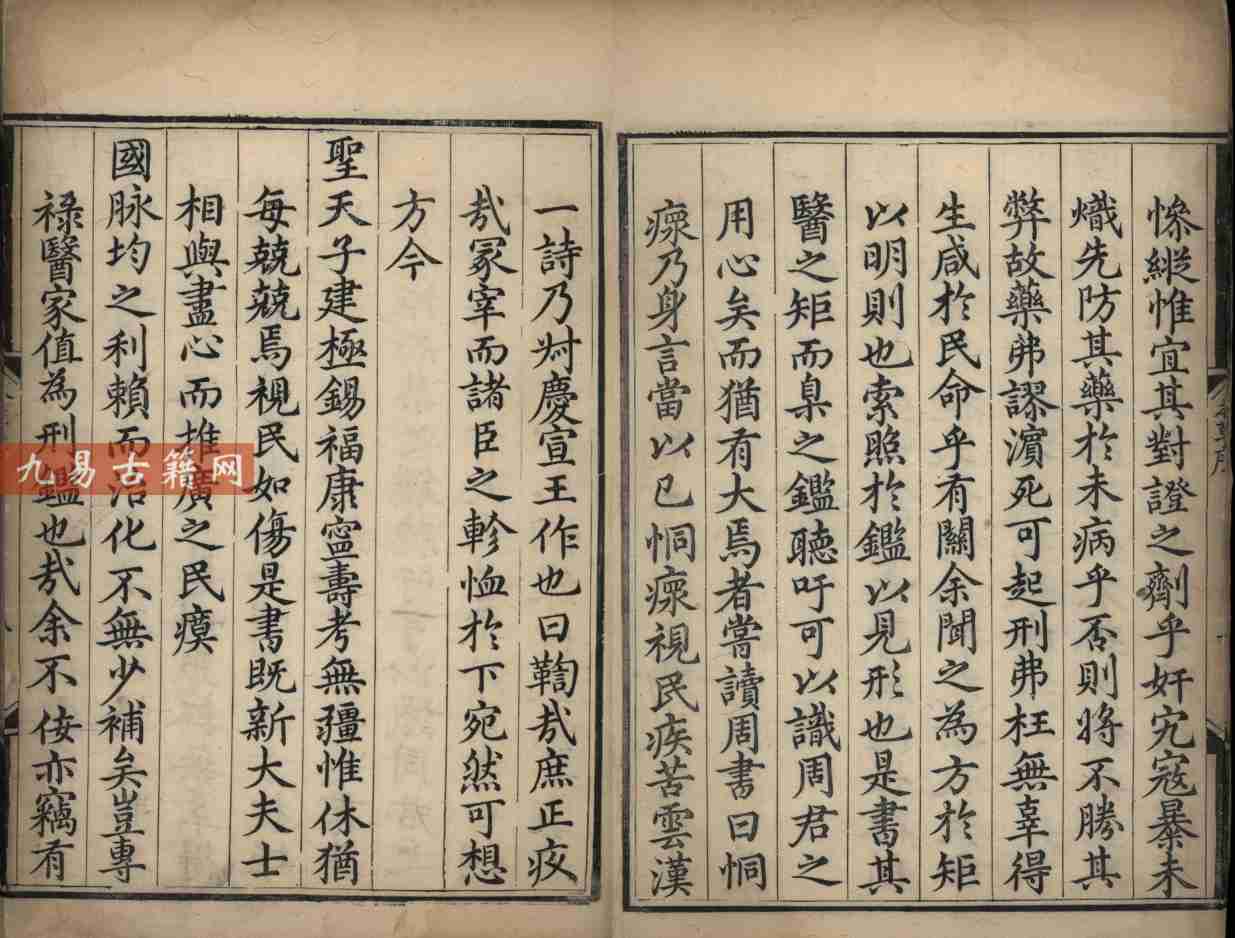 慘縱惟宜其對證之劑乎奸宄寇暴未
熾先防其藥於未病乎否則將不勝其
弊故藥弗謬濵死可起刑弗枉無辜得
生咸於民命乎有關余聞之為方於矩
以明則也索照於鑑以見形也是書其
醫之矩而臬之鑑聽吁可以識周君之
用心矣而猶有大焉者嘗讀周書曰恫
瘝乃身言當以已恫瘝視民疾苦雲漢
一詩乃為慶宣王作也曰鞫哉庶正疚
哉冢宰而諸臣之軫恤於下宛然可想
方今
聖天子建極錫福康寧壽考無疆惟休猶
每兢兢焉視民如傷是書既新大夫士
相與盡心而推廣之民瘼
國脉均之利賴而治化不無少補矣豈專
祿醫家值為刑鑑也哉余不佞亦竊有
九易古籍网